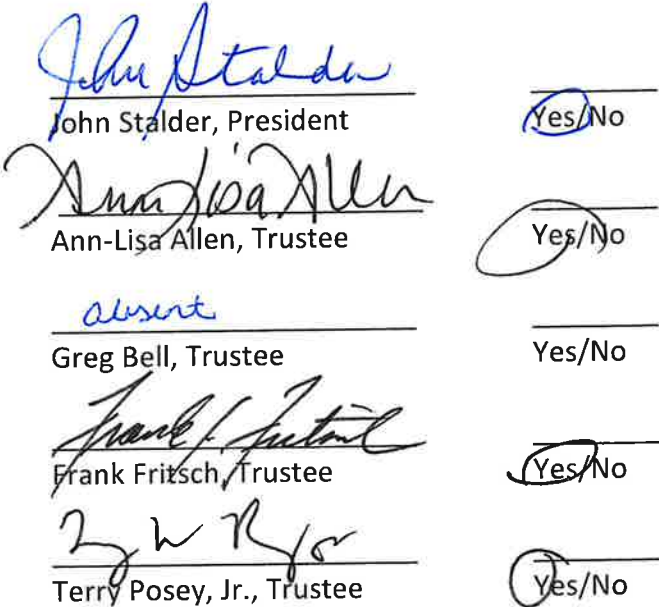 John Stalder
John Stalder, President Yes/No
Ann-Lisa Allen
Ann-Lisa Allen, Trustee Yes/No
absent
Greg Bell, Trustee Yes/No
Frank J. Fritsch
Frank Fritsch, Trustee Yes/No
Terry Posey, Jr., Trustee Yes/No